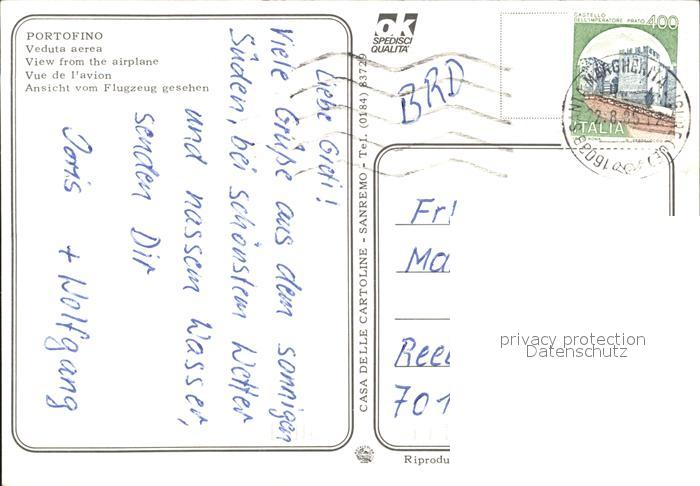 PORTOFINO
Veduta aerea
View from the airplane
Vue de l'avion
Ansicht vom Flugzeug gesehen
Liebe Greti!
Viele Grüße aus dem sonnigen
Süden, bei schönstem Wetter
und nassem Wasser,
senden Dir
Doris + Wolfgang
CASA DELLE CARTOLINE - SANREMO - Tel. (0184) 83729
ok
SPEDISCI
QUALITA'
BRD
CASTELLO
DELL'IMPERATORE PRATO
400
ITALIA
MARGHERITA LIGURE
16038
Fr
Ma
Ree
701
privacy protection
Datenschutz
Riprodu